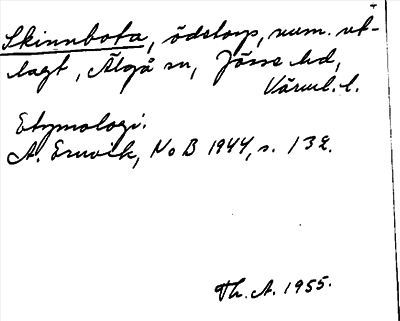 Skinnbota, ödetorp, num. ut-
lagt, Älgå sn, Jösse hd,
Värml. l.
Etymologi.
A. Ernvik, NoB 1944, s. 132.
Th. A. 1955.